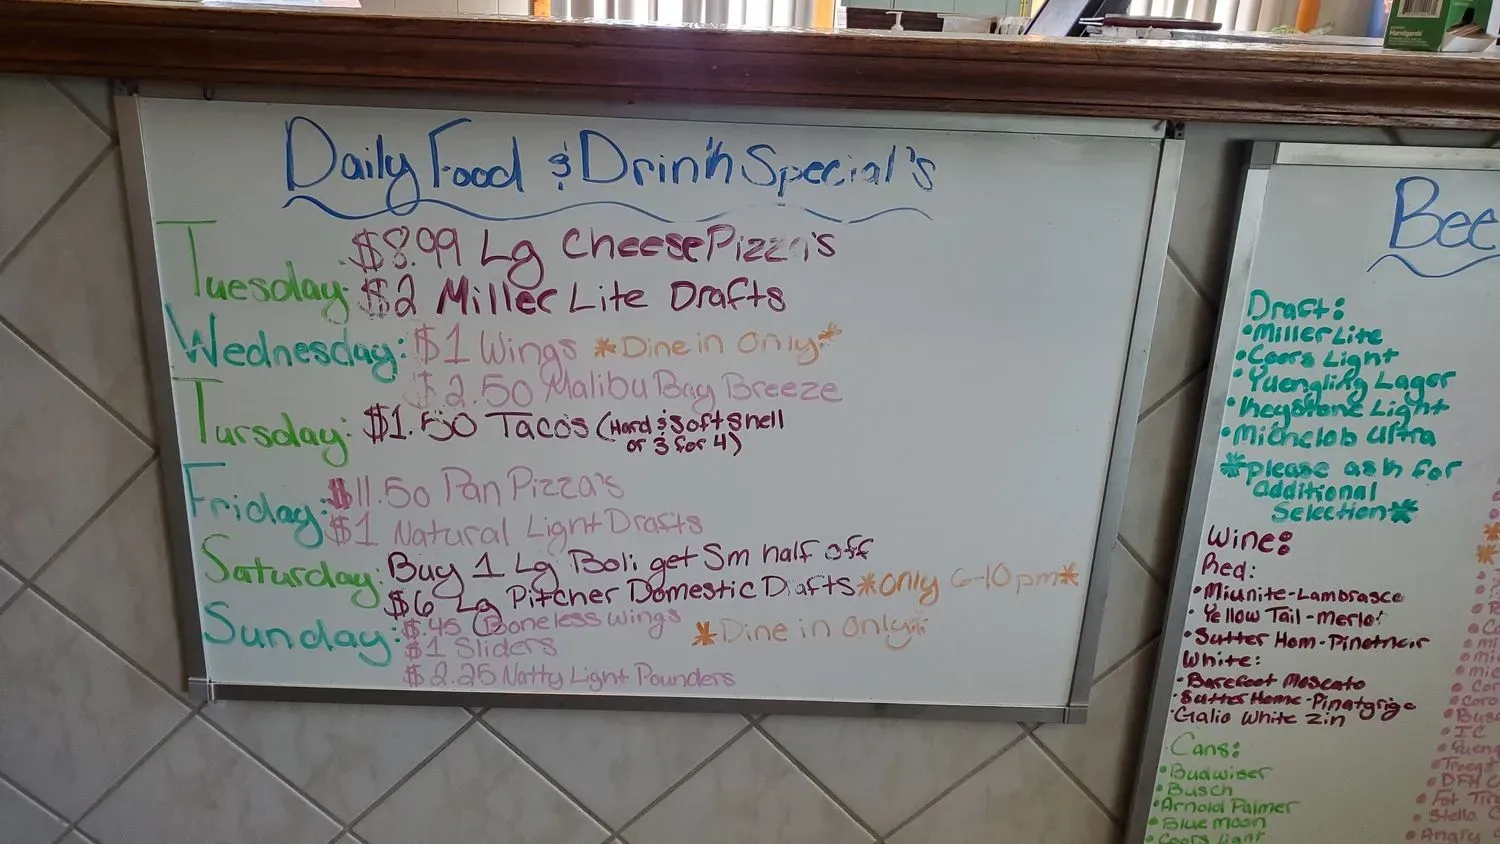 Handgards
Daily Food & Drink Special's
Tuesday: $8.99 Lg Cheese Pizza's
$2 Miller Lite Drafts
Wednesday: $1 Wings *Dine in Only*
$2.50 Malibu Bay Breeze
Tursday: $1.50 Tacos (Hard & Soft Shell
or 3 for 4)
Friday: $11.50 Pan Pizza's
$1 Natural Light Drafts
Saturday: Buy 1 Lg Boli get Sm half off
$6 Lg Pitcher Domestic Drafts *only 6-10pm*
Sunday: $.45 Boneless Wings
$1 Sliders *Dine in Only*
$2.25 Natty Light Pounders
Bee
Draft:
• Miller Lite
• Coors Light
• Yuengling Lager
• Keystone Light
• Michelob Ultra
*please ask for
additional
Selection*
Wine:
Red:
• Miunite-Lambrasco
• Yellow Tail-Merlot
• Sutter Hom-Pinotnoir
White:
• Barefoot Moscato
• Sutter Home-Pinatgrigo
• Galio White Zin
Cans:
• Budwiser
• Busch
• Arnold Palmer
• Blue Moon
• Coors Light
• IC
• Yueng
• DFH
• Fat Tire
• Stella
• Angry